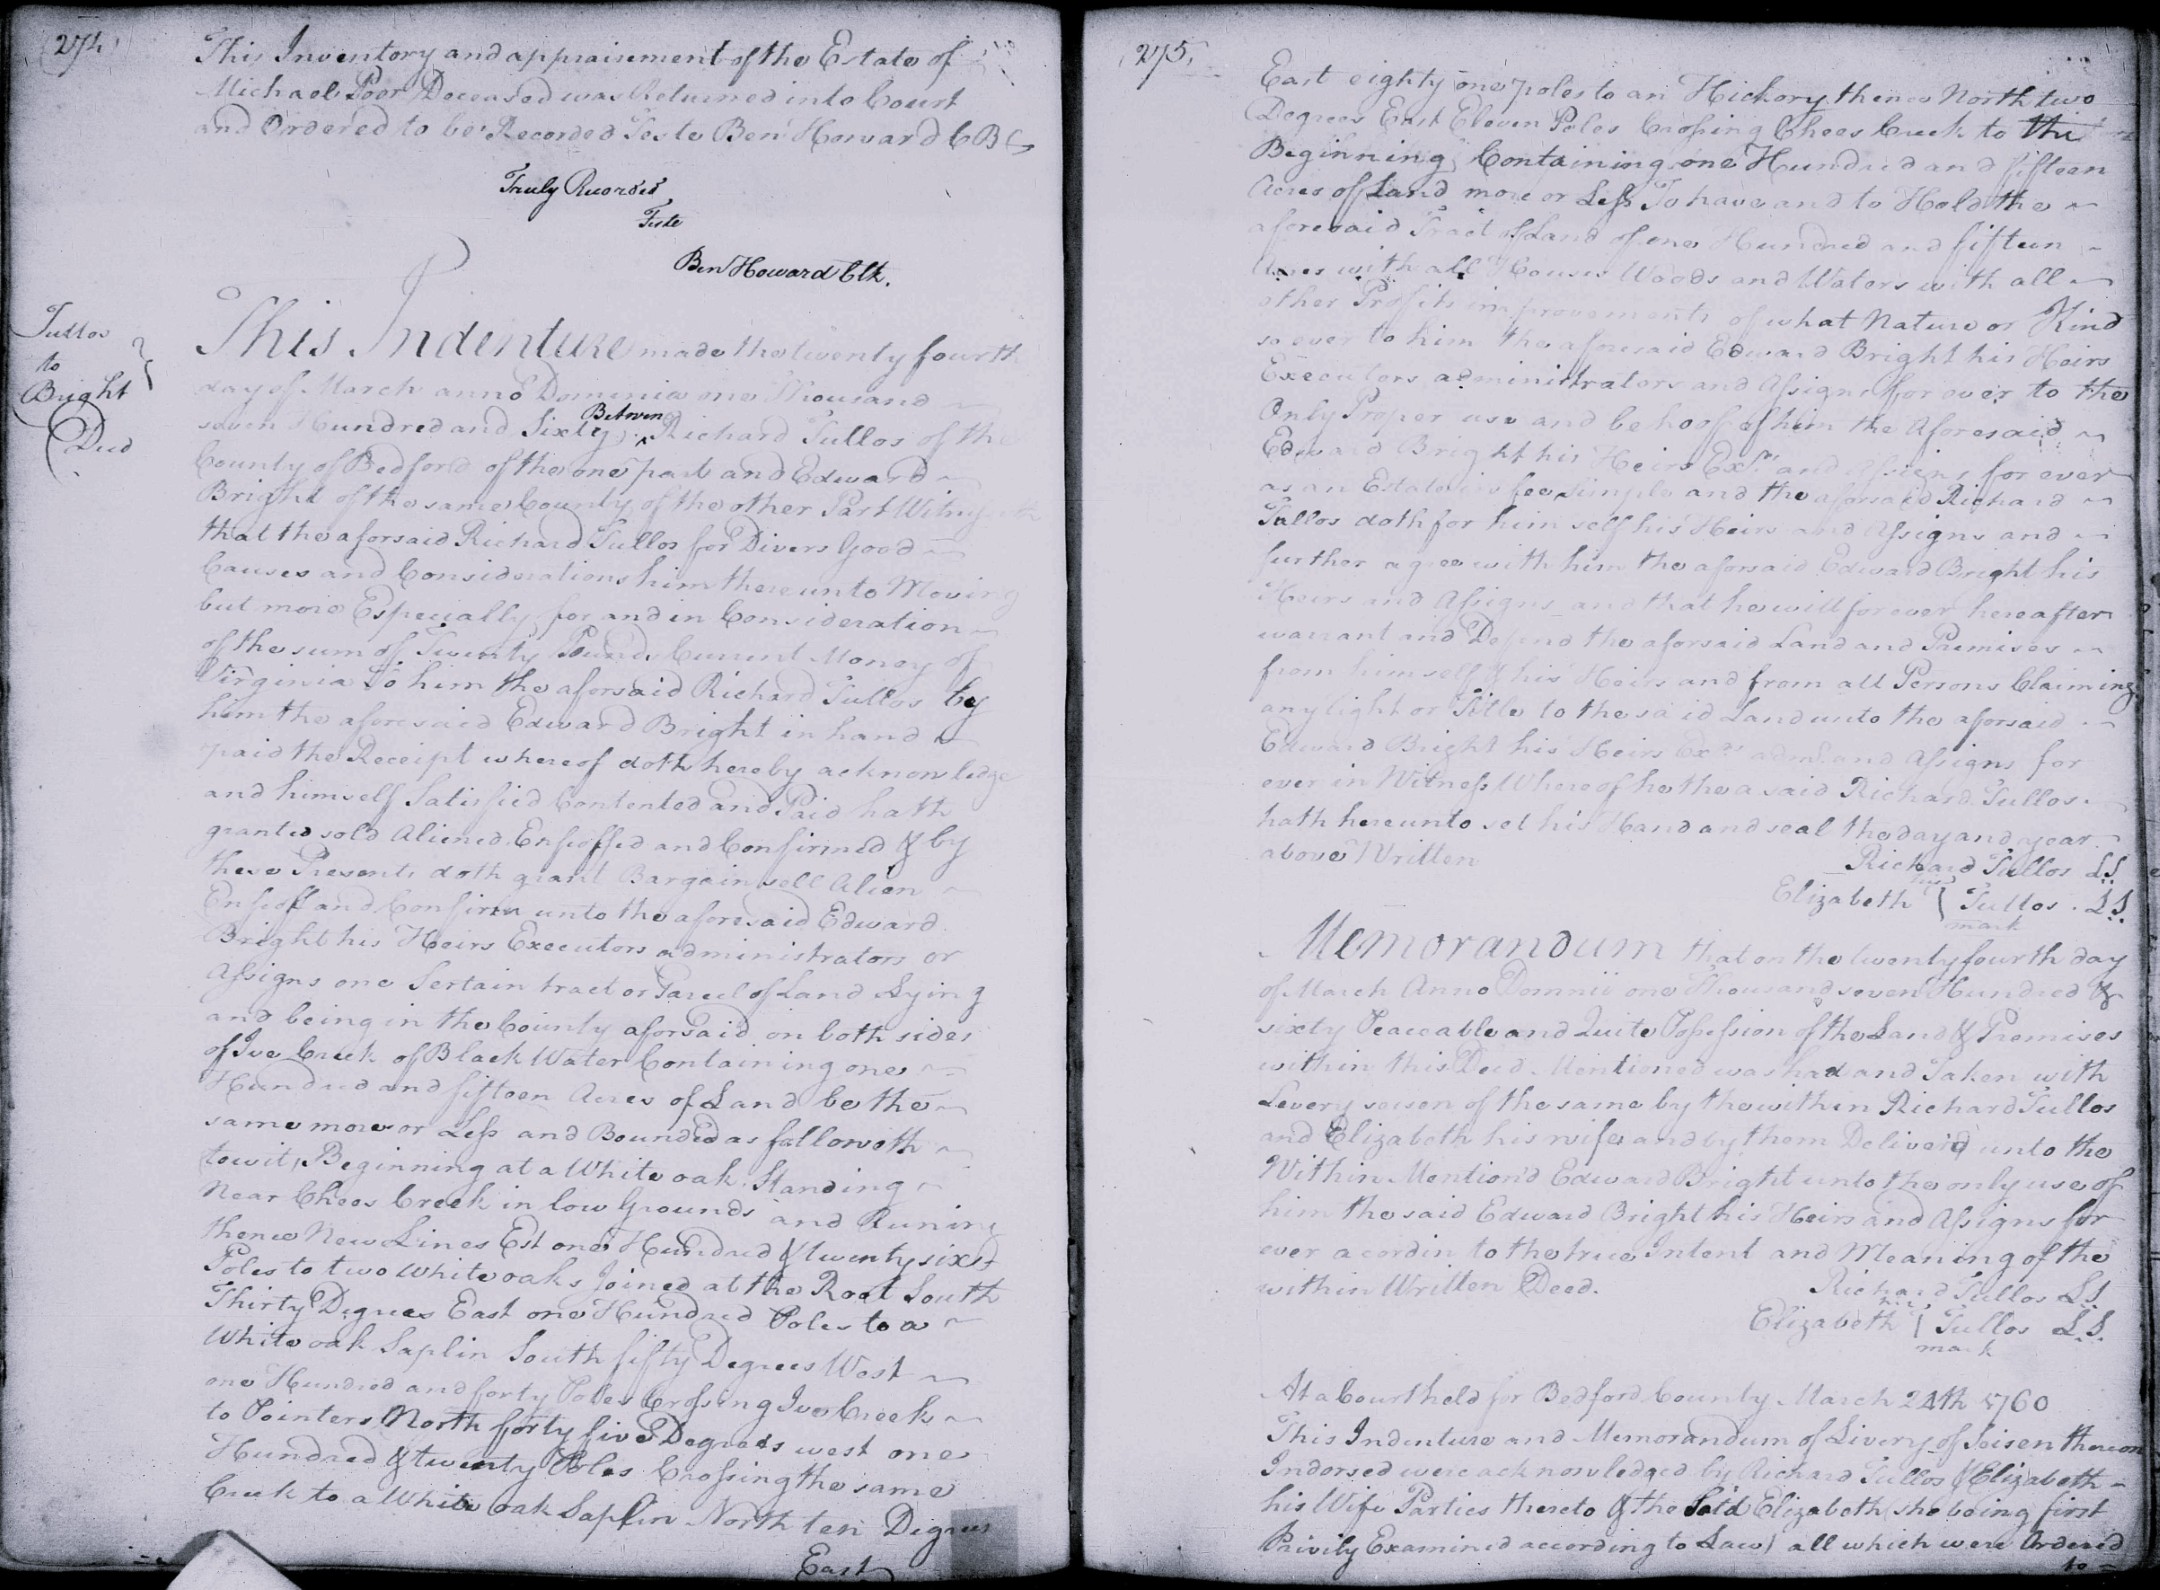 274
This Inventory and appraisement of the Estate of
Michael Poor Deceased was Returned into Court
and Ordered to be Recorded Teste Ben Howard CBC
Truly Recorded
Teste
Ben Howard Clk.
Tullos
to
Bright
Deed
This Indenture made the twenty fourth
day of March anno Dominie one Thousand
seven Hundred and Sixty, Between Richard Tullos of the
County of Bedford of the one part and Edward
Bright of the same County of the other Part Witnesseth
that the aforsaid Richard Tullos for Divers Good
Causes and Considerations him thereunto Moving
but more Especially for and in Consideration
of the sum of Twenty Pounds Current Money of
Virginia To him the aforsaid Richard Tullos by
him the aforesaid Edward Bright in hand
paid the Receipt whereof doth hereby acknowledge
and himself Satisfied Contented and Paid hath
granted sold Aliened Enfeoffed and Confirmed & by
these Presents doth grant Bargain sell Alien
Enfeoff and Confirm unto the aforesaid Edward
Bright his Heirs Executors administrators or
Assigns one Sertain tract or Parcel of Land Lying
and being in the County aforsaid on both sides
of Ive Creek of Black Water Containing one
Hundred and fifteen Acres of Land be the
same more or Less and Bounded as falloweth
towit, Beginning at a White oak Standing
Near Chees Creek in low Grounds and Runing
thence New Lines Est one Hundred & twenty six
Poles to two white oaks Joined at the Root South
Thirty Degrees East one Hundred Poles to a
White oak Saplin South fifty Degrees West
one Hundred and forty Poles Crossing Ive Creek
to Pointers North forty five Degrees west one
Hundred & twenty Poles Crossing the same
Creek to a White oak Saplin North ten Degrees
East
275,
East eighty one poles to an Hickory thence North two
Degrees East Eleven Poles Crossing Chees Creek to the
Beginning Containing one Hundred and fifteen
Acres of Land more or Less To have and to Hold the
aforesaid Tract of Land of one Hundred and fifteen
Acres with all Houses Woods and Waters with all
other Profits improvements of what Nature or Kind
so ever to him the aforesaid Edward Bright his Heirs
Executors administrators and Assigns for ever to the
Only Proper use and behoof of him the Aforesaid
Edward Bright his Heirs Exrs and Assigns for ever
as an Estate in fee simple and the aforsaid Richard
Tullos doth for him self his Heirs and Assigns and
further agree with him the aforsaid Edward Bright his
Heirs and Assigns and that he will for ever hereafter
warrant and Defend the aforsaid Land and Premises
from himself & his Heirs and from all Persons Claiming
any light or Title to the said Land unto the aforsaid
Edward Bright his Heirs Exrs adms and Assigns for
ever in Witness Whereof he the a said Richard Tullos
hath hereunto set his Hand and seal the day and year
above Written
Richard Tullos LS
Elizabeth her Tullos. LS.
mark
Memorandum that on the twenty fourth day
of March Anno Domnii one Thousand seven Hundred &
sixty Peaceable and Quite Possession of the Land & Premises
within this Deed Mentioned was had and Taken with
Levery seison of the same by the within Richard Tullos
and Elizabeth his wife and by them Deliver'd unto the
Within Mention'd Edward Bright unto the only use of
him the said Edward Bright his Heirs and Assigns for
ever acordin to the true Intent and Meaning of the
within Written Deed.
Richard Tullos LS
Elizabeth her Tullos L.S.
mark
At a Court held for Bedford County March 24th 1760
This Indenture and Memorandum of Livery of Seisen thereon
Indorsed were acknowledged by Richard Tullos & Elizabeth
his Wife Parties thereto & the Sa'd Elizabeth (she being first
Privily Examined according to Law) all which were Ordered
to